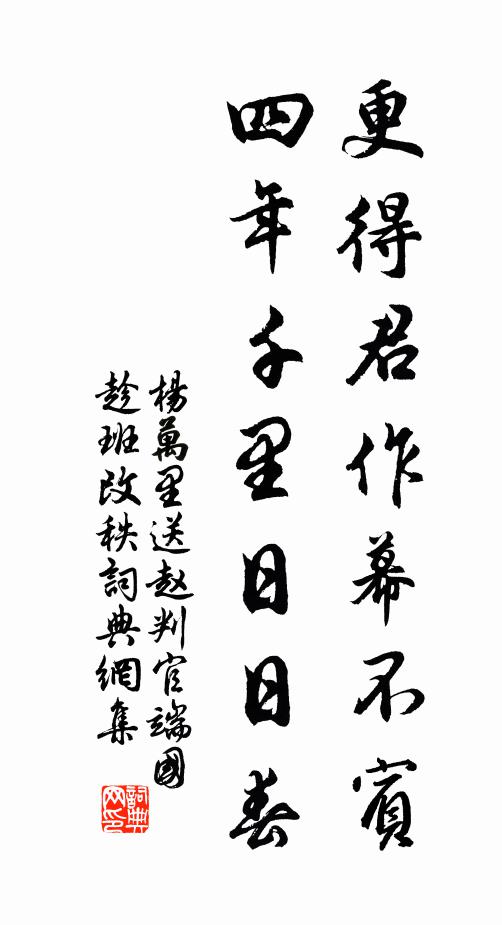 更得君作幕不賓
四年千里日日春
楊萬里送赵判官端國
趁班改秩詞典網集
詞典
网印